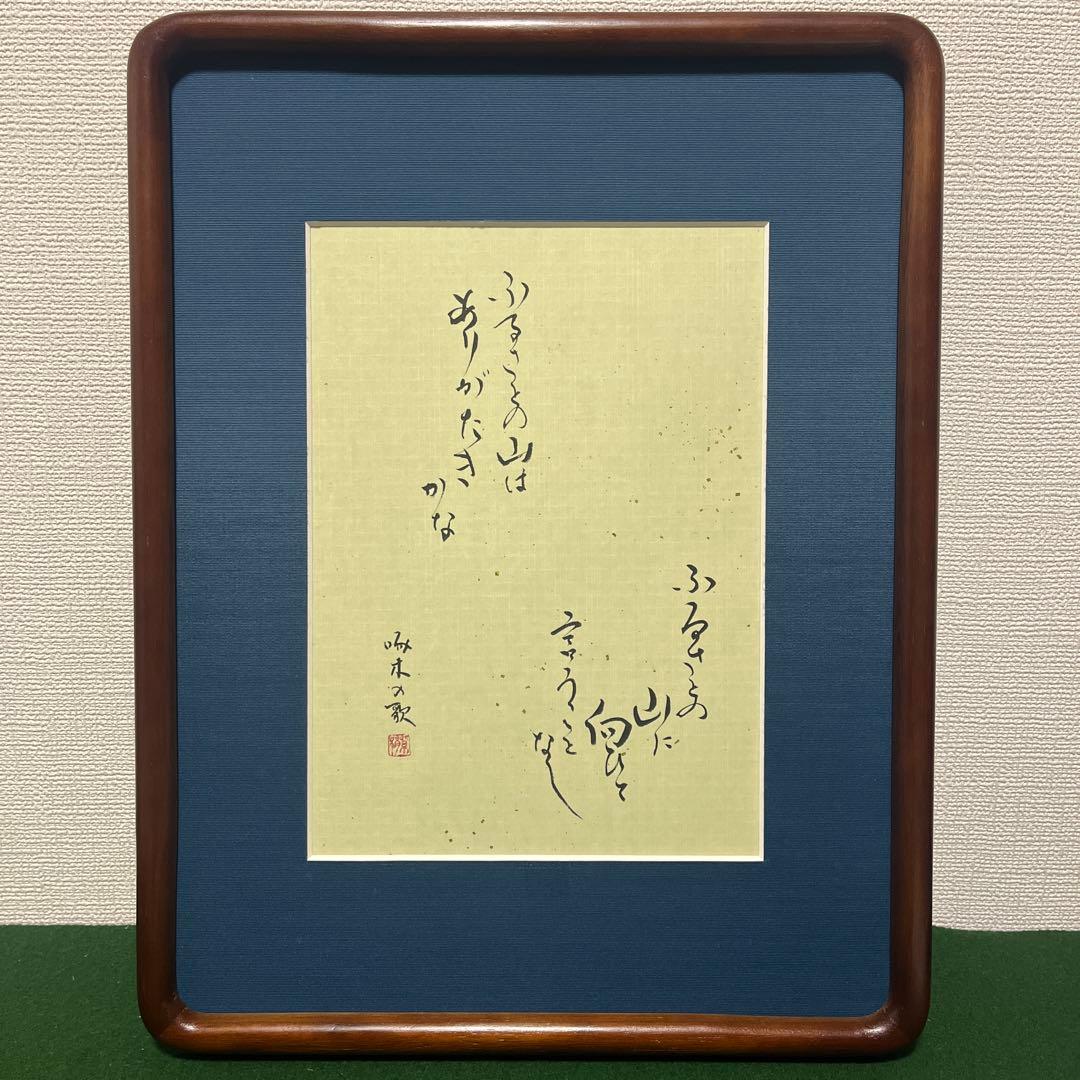 ふるさとの
山に
向ひて
言うこと
なし
ふるさとの山は
ありがたき
かな
啄木の歌